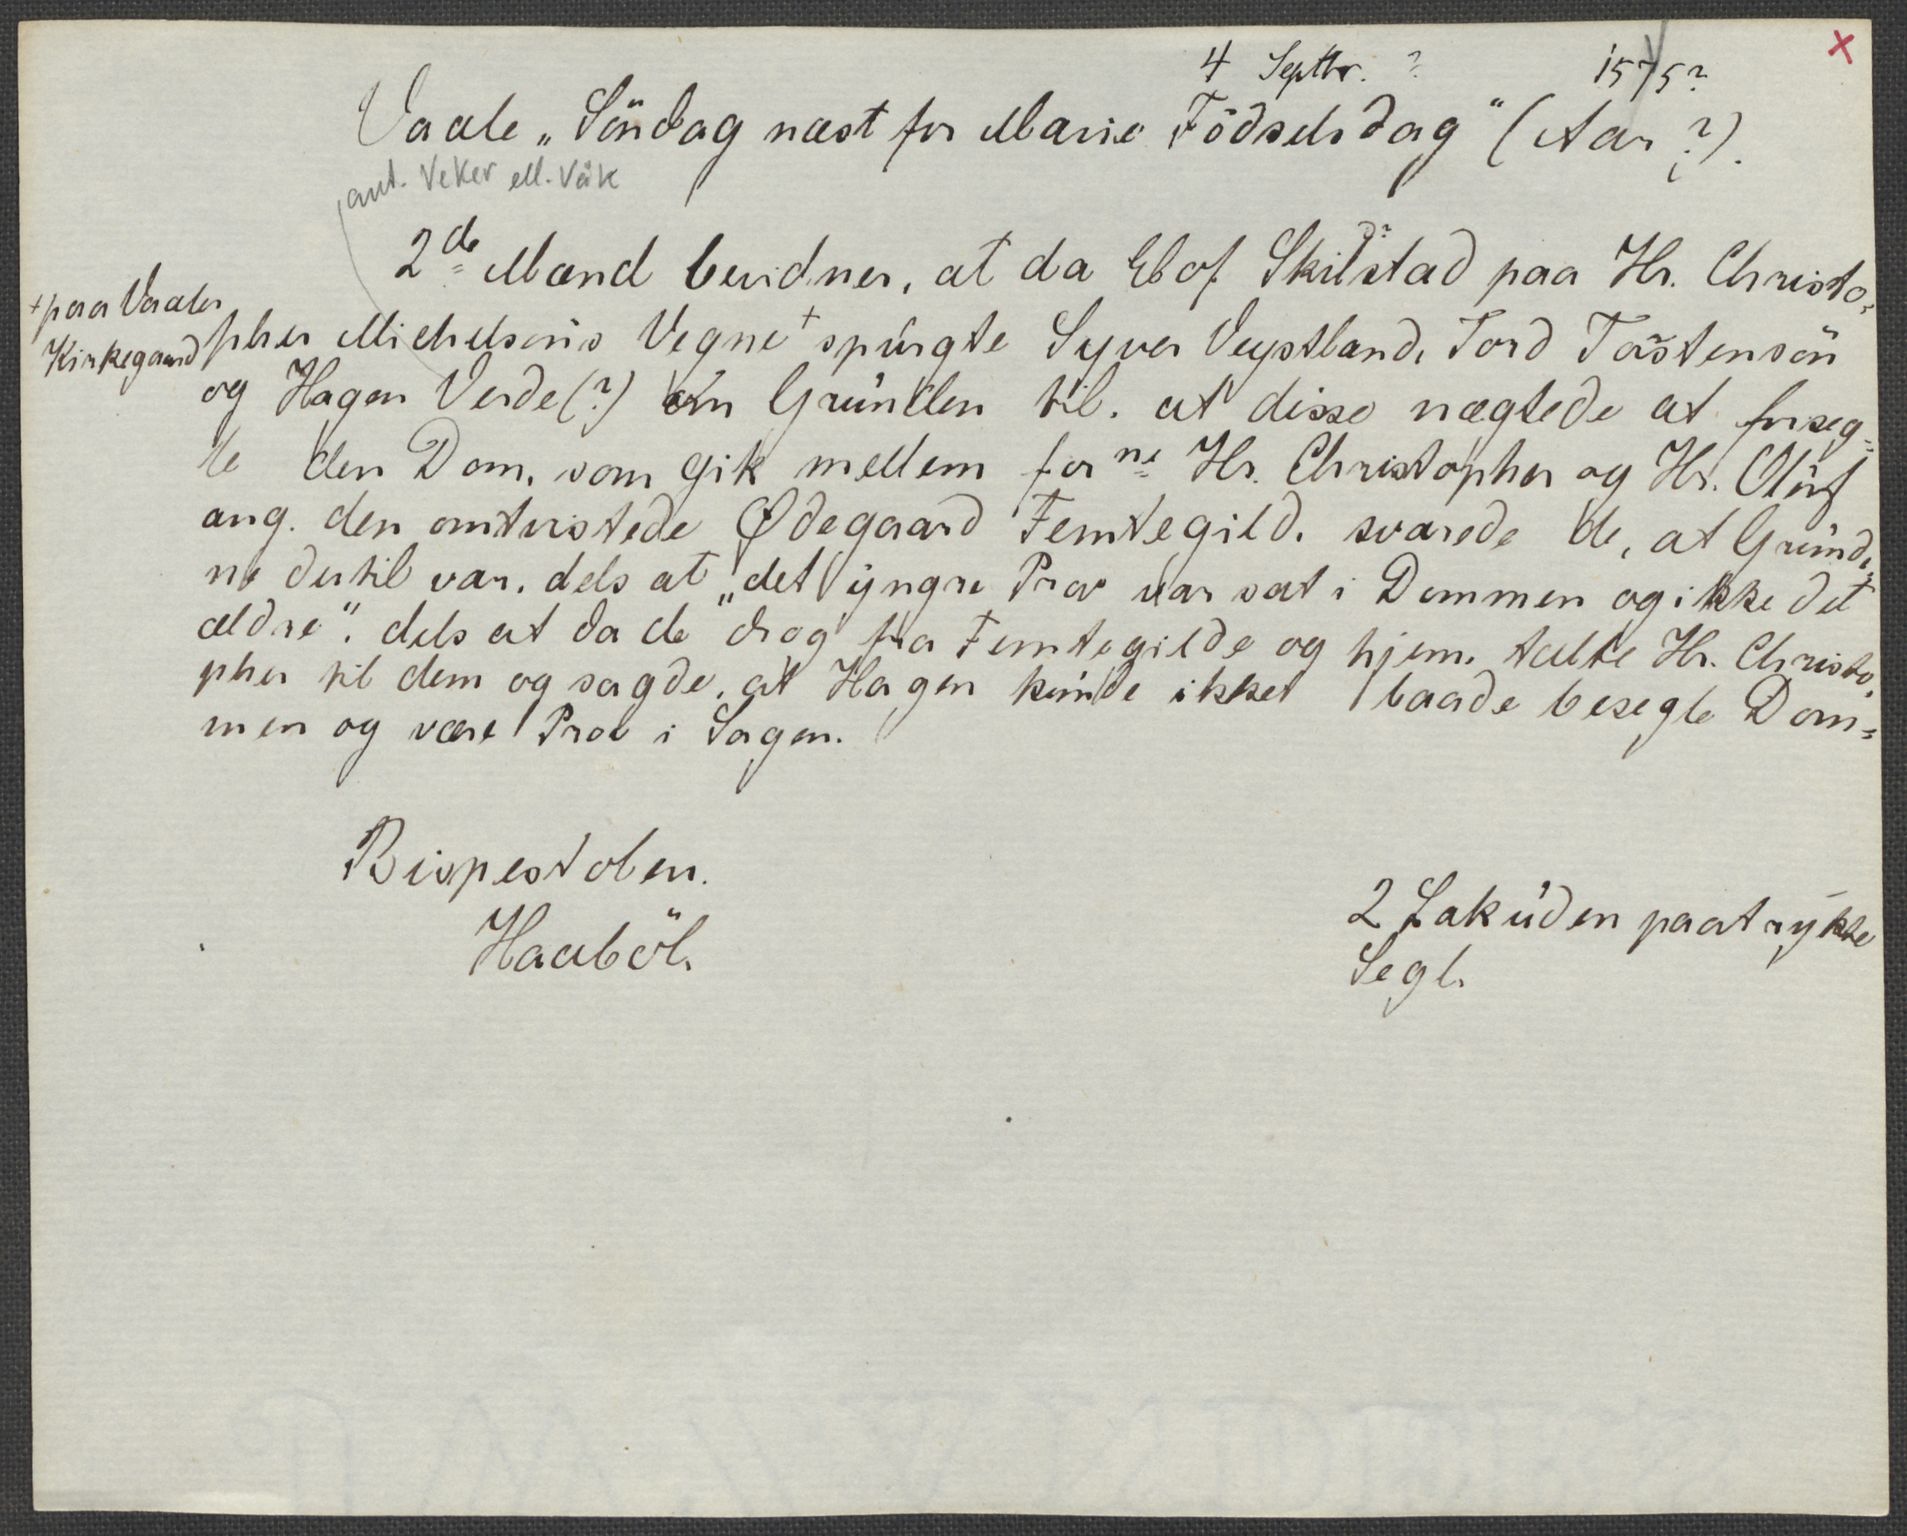 4 Septbr. ? 1575?
×
Vaale „Söndag næst for Marie Födselsdag" (Aar ?).
ant. Veker ell. Våk
2de Mænd bevidner, at da Elof Skilstad paa Hr. Christo-
+ paa Vaaler
Kirkegaard
pher Michelsøns Vegne + spurgte Syver Veystland, Tord Torstensön
og Hagen Verde (?) om Grunden til, at disse nægtede at forseg-
le den Dom, som gik mellem forne Hr. Christopher og Hr. Oluf
ang. den omtvistede Ødegaard Femtegild, svarede de, at Grunde-
ne dertil var, dels at „det yngre Prov var sat i Dommen og ikke det
ældre", dels at da de drog fra Femtegilde og hjem, talte Hr. Christo-
pher til dem og sagde, at Hagen kunde ikke baade besegle Dom-
men og være Prov i Sagen.
Bispestolen.
Haaböl.
2 Lak uden paatrykte
Segl.